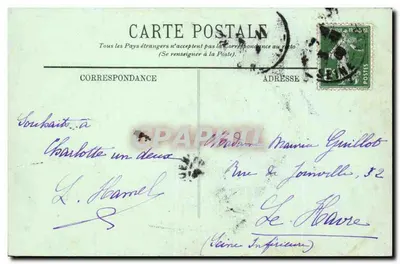 CARTE POSTALE
Tous les Pays étrangers n'acceptent pas la Correspondance au recto
(Se renseigner à la Poste).
CORRESPONDANCE
ADRESSE
Souhaits à
Charlotte un deux
L. Hamel
CPAPHIL
Madame Maurice Guillot
Rue de Joinville, 32
Le Havre
(Seine Inférieure)
POSTES